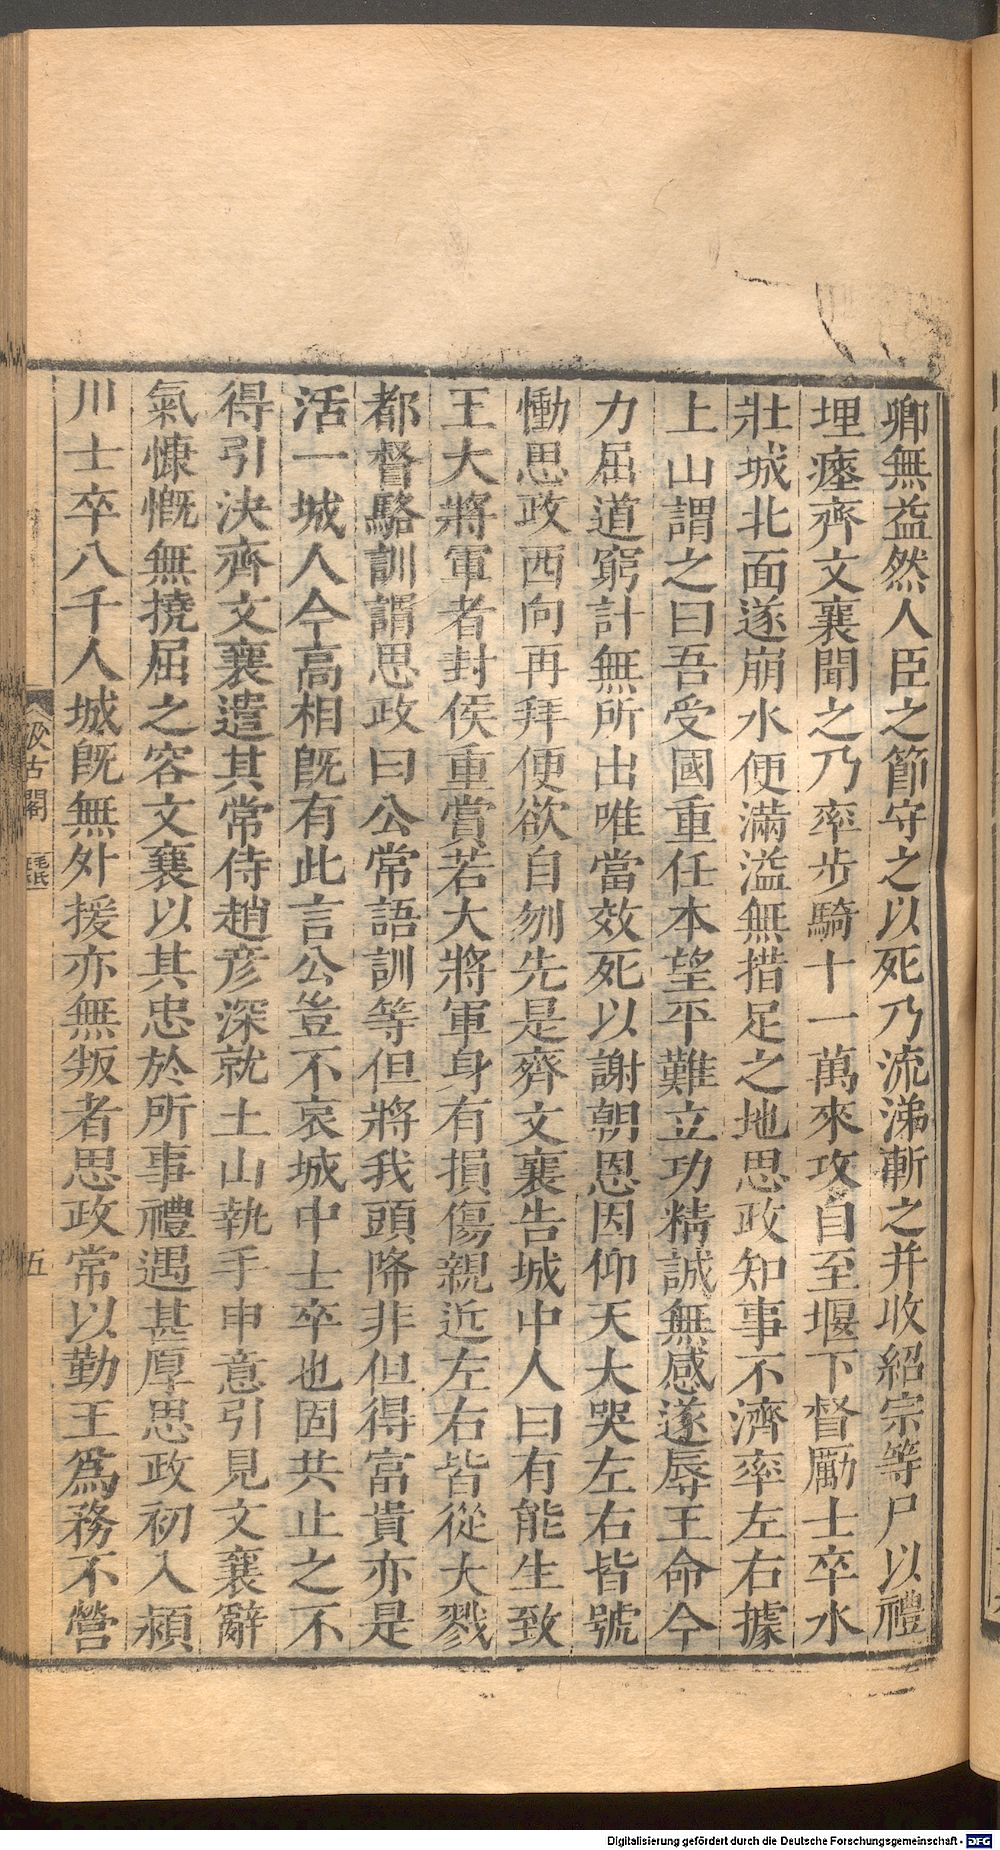 卿無益然人臣之節守之以死乃流涕斬之并收紹宗等尸以禮
埋瘞齊文襄聞之乃率步騎十一萬來攻自至堰下督勵士卒水
壯城北面遂崩水便滿溢無措足之地思政知事不濟率左右據
上山謂之曰吾受國重任本望平難立功精誠無感遂辱王命今
力屈道窮計無所出唯當效死以謝朝恩因仰天大哭左右皆號
慟思政西向再拜便欲自刎先是齊文襄告城中人曰有能生致
王大將軍者封侯重賞若大將軍身有損傷親近左右皆從大戮
都督駱訓謂思政曰公常語訓等但將我頭降非但得富貴亦是
活一城人今高相既有此言公豈不哀城中士卒也固共止之不
得引決齊文襄遣其常侍趙彦深就土山執手申意引見文襄辭
氣慷慨無撓屈之容文襄以其忠於所事禮遇甚厚思政初入潁
川士卒八千人城既無外援亦無叛者思政常以勤王爲務不營
汲古閣
五
Digitalisierung gefördert durch die Deutsche Forschungsgemeinschaft - DFG